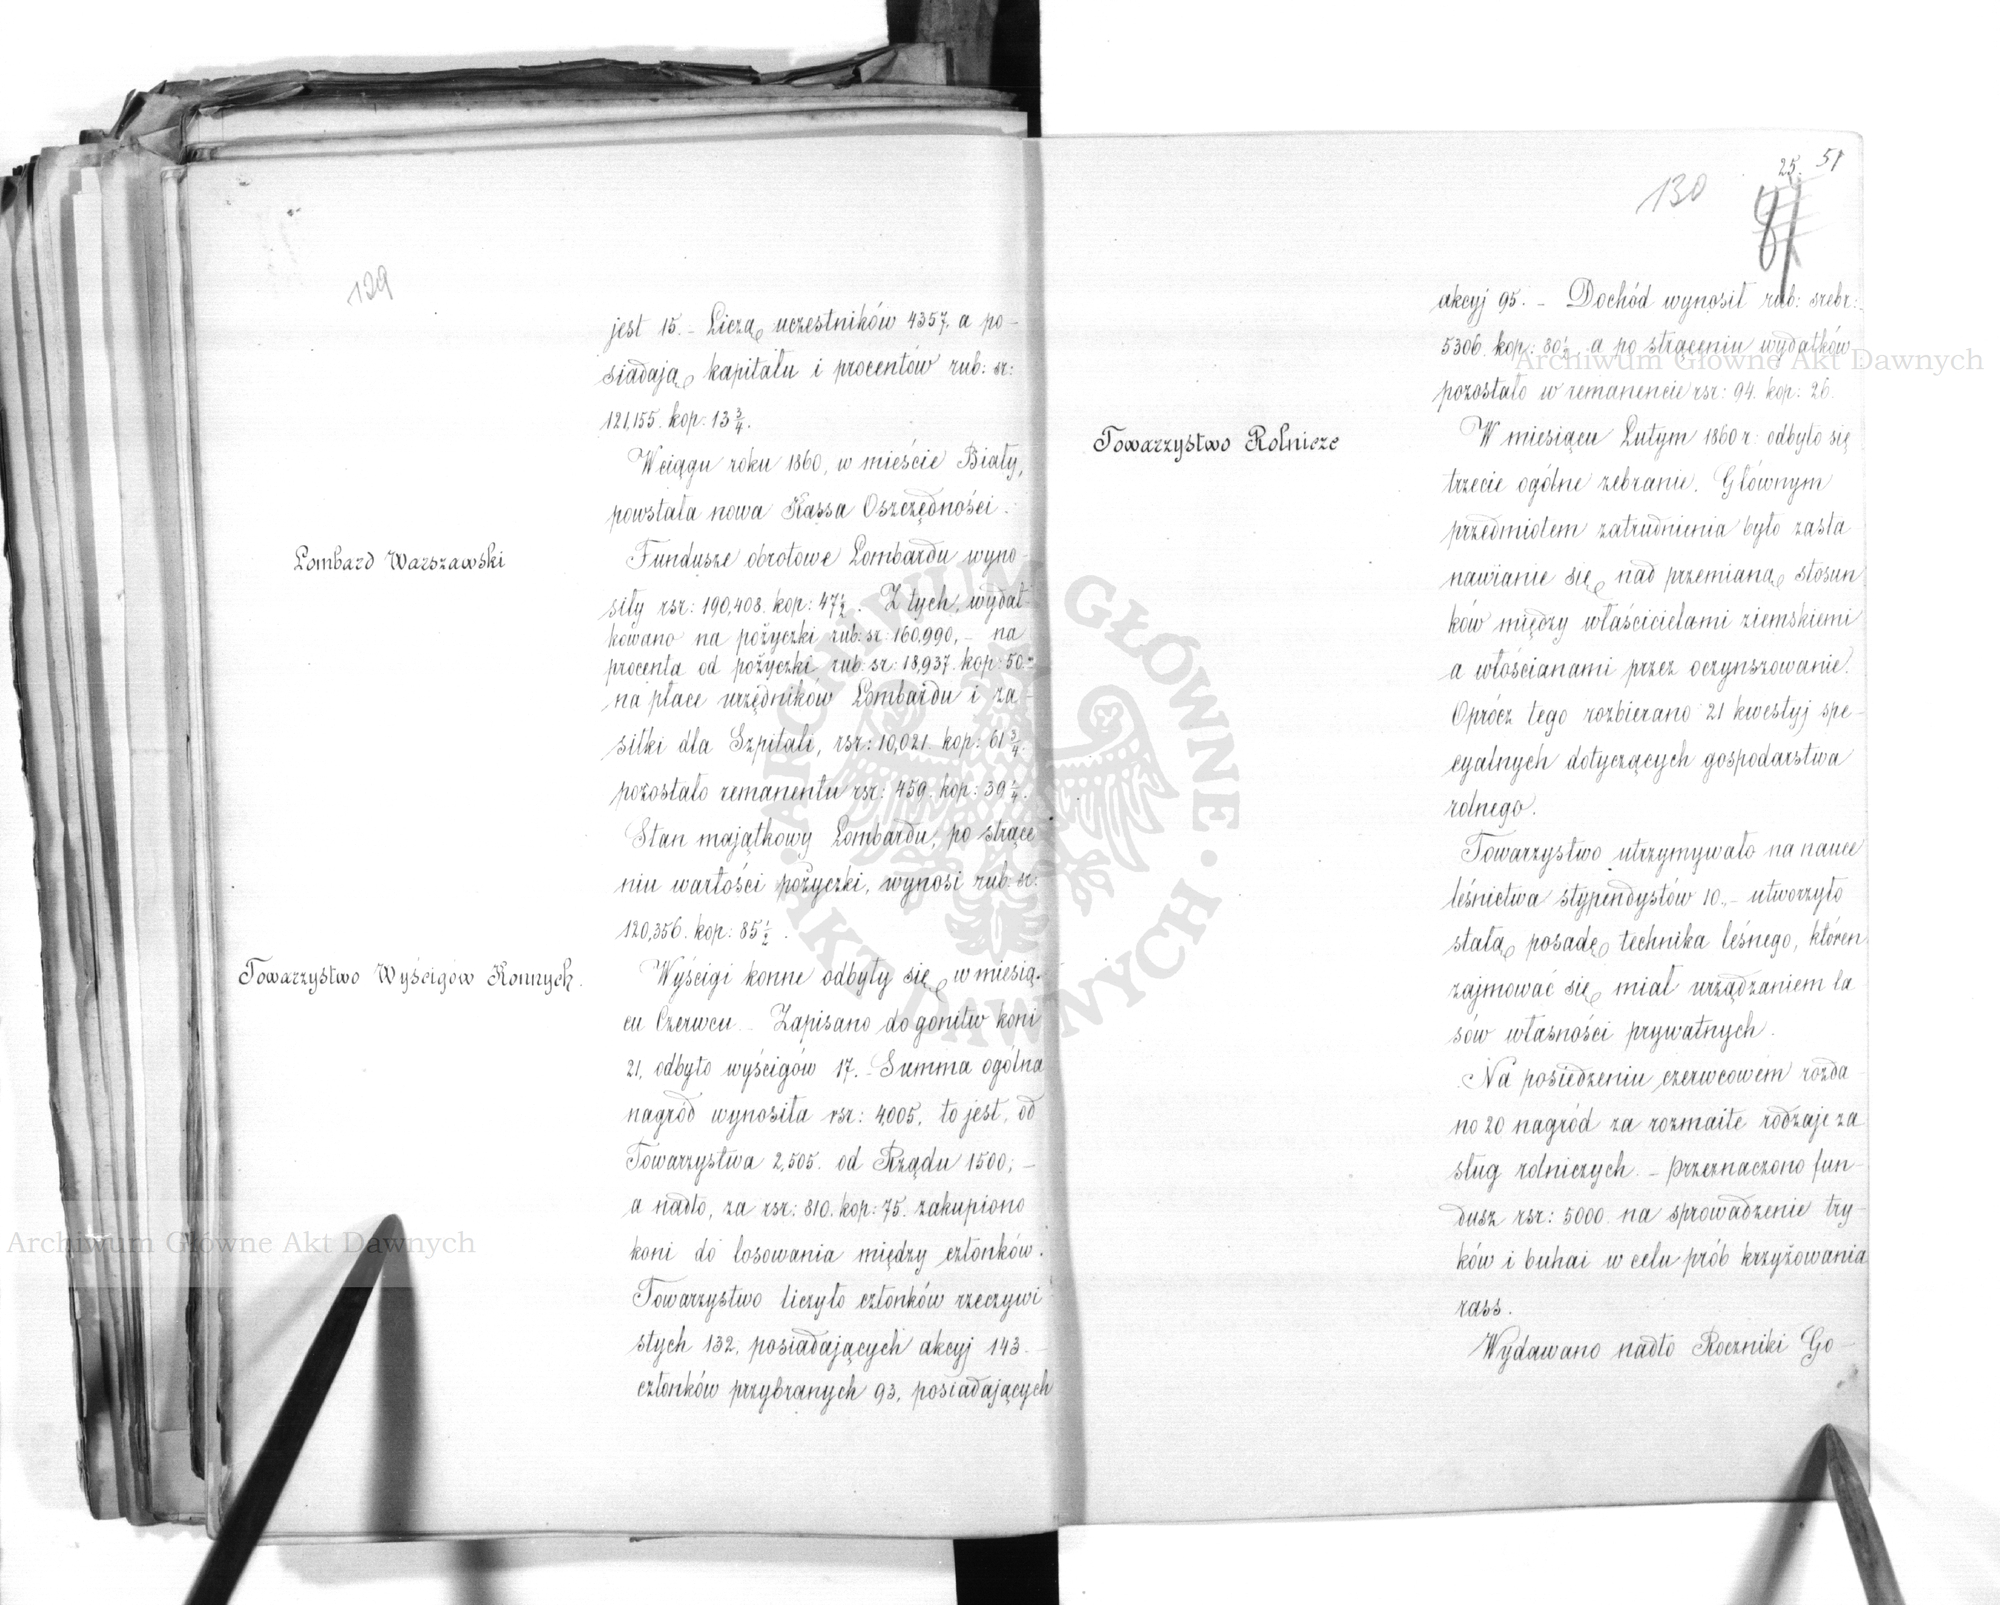 129
jest 15. – Liczą uczestników 4357, a po-
siadają kapitału i procentów rub: sr:
121,155. kop: 13 3/4.
W ciągu roku 1860, w mieście Biały,
powstała nowa Kassa Oszczędności.
Lombard Warszawski
Fundusze obrotowe Lombardu wyno-
siły rsr: 190,408. kop: 47 1/2. Z tych, wydat-
kowano na pożyczki rub: sr: 160,990, – na
procenta od pożyczki rub: sr: 18,937. kop: 50. –
na płace urzędników Lombardu i za-
siłki dla Szpitali, rsr: 10,021. kop: 61 3/4.
pozostało remanentu rsr: 459. kop: 39 1/4.
Stan majątkowy Lombardu, po strące
niu wartości pożyczki, wynosi rub: sr:
120,356. kop: 85 1/2.
Towarzystwo Wyścigów Konnych.
Wyścigi konne odbyły się w miesią-
cu Czerwcu. – Zapisano do gonitw koni
21, odbyło wyścigów 17. – Summa ogólna
nagród wynosiła rsr: 4,005, to jest, od
Towarzystwa 2,505. od Rządu 1500; –
a nadto, za rsr: 810. kop: 75. zakupiono
koni do losowania między członków.
Towarzystwo liczyło członków rzeczywi
stych 132, posiadających akcyj 143. –
członków przybranych 93, posiadających
130
25. 51
akcyj 95. – Dochód wynosił rub: srebr:
5306. kop: 80 1/2 a po strąceniu wydatków
pozostało w remanencie rsr: 94. kop: 26.
Towarzystwo Rolnicze
W miesiącu Lutym 1860 r: odbyło się
trzecie ogólne zebranie. Głównym
przedmiotem zatrudnienia było zasta
nawianie się nad przemianą stosun
ków między właścicielami ziemskiemi
a włościanami przez oczynszowanie.
Oprócz tego rozbierano 21 kwestyj spe-
cyalnych dotyczących gospodarstwa
rolnego.
Towarzystwo utrzymywało na nauce
leśnictwa stypendystów 10., – utworzyło
stałą posadę technika leśnego, któren
zajmować się miał urządzaniem la
sów własności prywatnych.
Na posiedzeniu czerwcowém rozda-
no 20 nagród za rozmaite rodzaje za
sług rolniczych. – przeznaczono fun-
dusz rsr: 5000. na sprowadzenie try-
ków i buhai w celu prób krzyżowania
rass.
Wydawano nadto Roczniki Go-
Archiwum Główne Akt Dawnych
ARCHIWUM GŁÓWNE
AKT DAWNYCH
Archiwum Główne Akt Dawnych